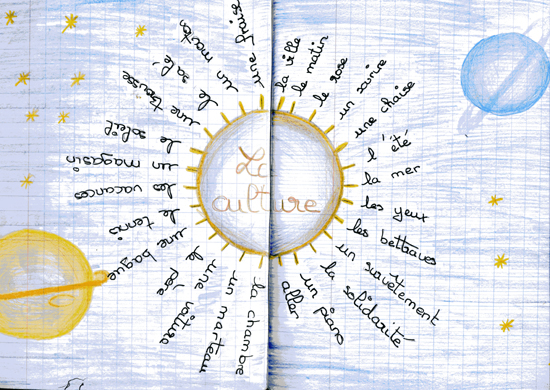 La
culture
la ville
le matin
le rose
un sourire
une chaise
l'été
la mer
les yeux
les bettraves
un survêtement
la solidarité
un piano
aller
la chambre
un marteau
une voiture
le père
une bague
le tennis
les vacances
un magasin
le soleil
une trousse
le salé
un marteau